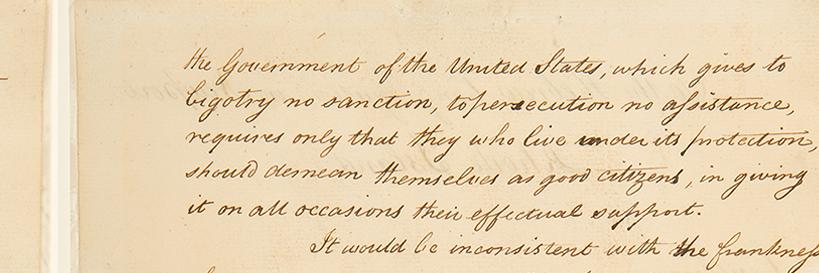 the Government of the United States, which gives to
bigotry no sanction, to persecution no assistance,
requires only that they who live under its protection,
should demean themselves as good citizens, in giving
it on all occasions their effectual support.
It would be inconsistent with the frankness